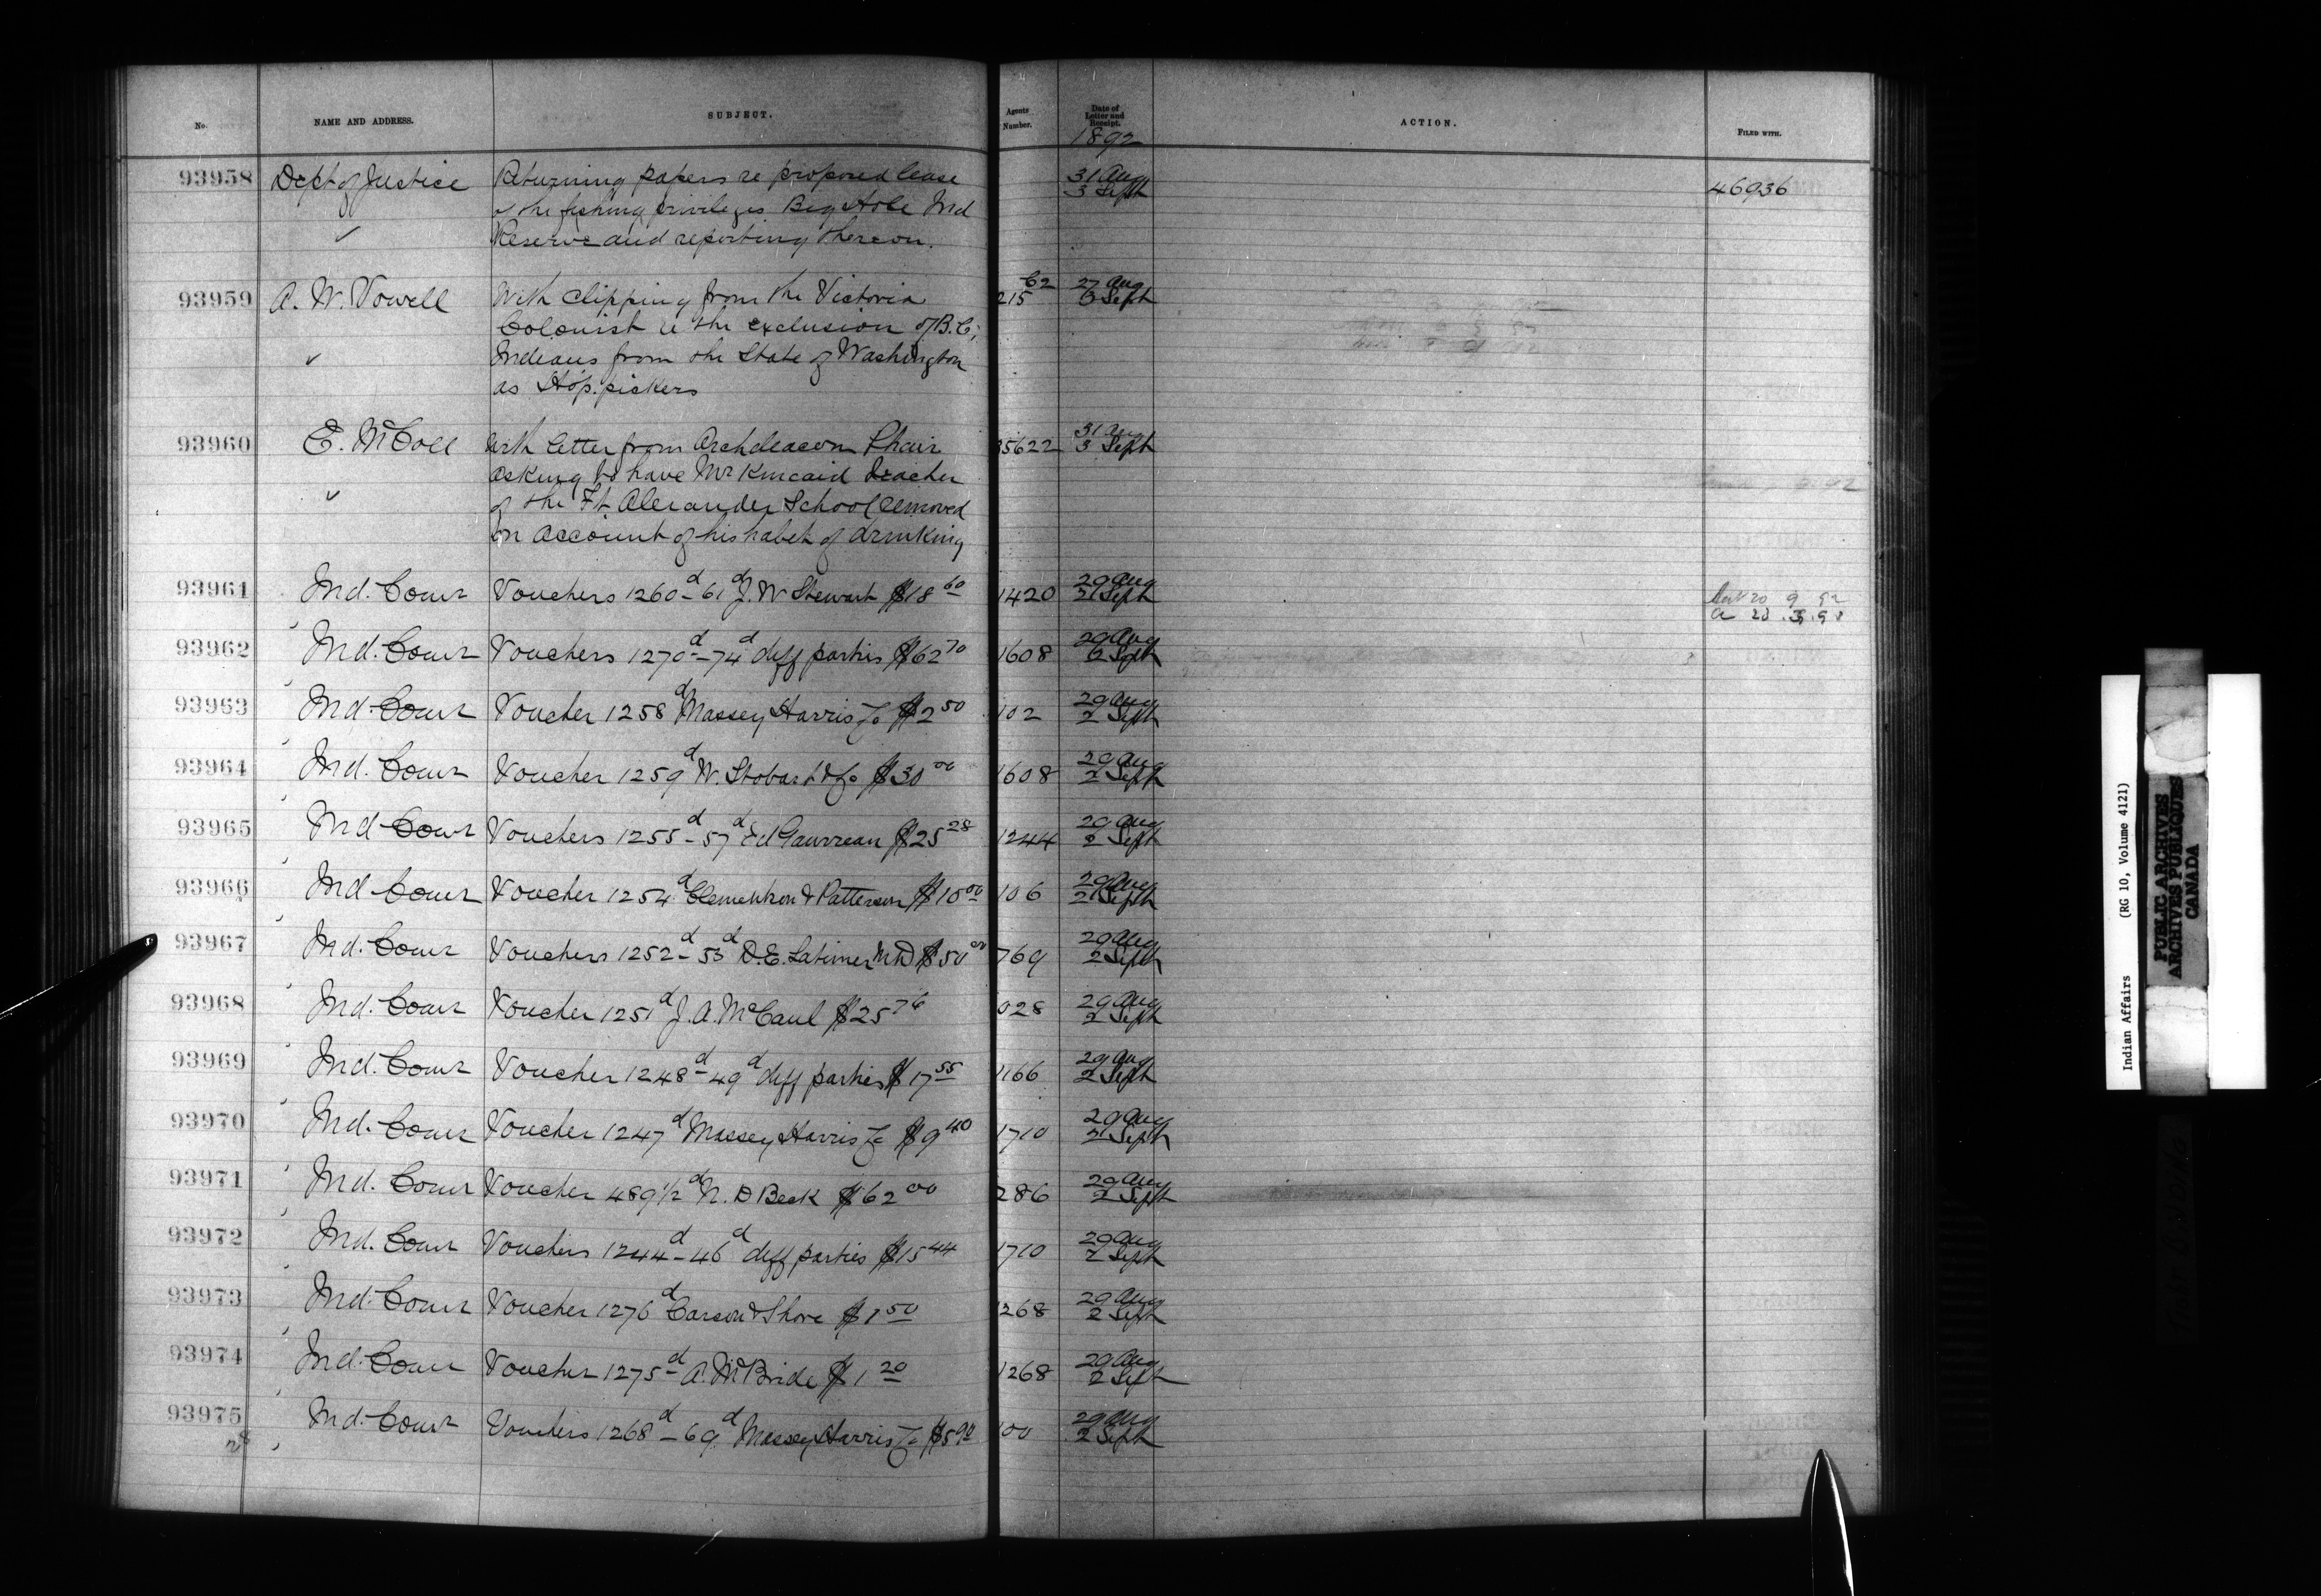 No.
NAME AND ADDRESS.
SUBJECT.
Agents Number.
Date of Letter and Receipt.
1892
ACTION.
FILED WITH.
93958 Dept of Justice Returning papers re proposed lease 31 Aug 3 Sept 46936
of the fishing privileges Big Hole Ind
Reserve and reporting thereon.
93959 A. W. Vowell With clipping from the Victoria 215 62 27 Aug Sept
Colonist re the exclusion of B.C.
Indians from the State of Washington
as Hop. pickers
93960 E. McColl With letter from Archdeacon Phair 35622 31 Aug 3 Sept
asking to have Mr Kincaid teacher
of the Ft Alexander School removed
on account of his habit of drinking
93961 Ind. Comr Vouchers 1260d-61d J. W Stewart $18 60 1420 29 Aug 2 Sept
93962 Ind. Comr Vouchers 1270d-74d diff parties $62 70 1608 29 Aug Sept
93963 Ind. Comr Voucher 1258d Massey Harris Co $2 50 102 29 Aug 2 Sept
93964 Ind. Comr Voucher 1259d W. Stobart & Co $30 00 1608 29 Aug 2 Sept
93965 Ind Comr Vouchers 1255d-57d Ed Gaurreau $25 28 1244 29 Aug 2 Sept
93966 Ind Comr Voucher 1254d Clementson & Patterson $10 00 106 29 Aug 2 Sept
93967 Ind. Comr Vouchers 1252d-53d D.E. Latimer MD $50 00 769 29 Aug 2 Sept
93968 Ind. Comr Voucher 1251d J. A. McCaul $25 76 928 29 Aug 2 Sept
93969 Ind. Comr Voucher 1248d-49d diff parties $17 55 1166 29 Aug 2 Sept
93970 Ind. Comr Voucher 1247d Massey Harris Co $9 40 1710 29 Aug 2 Sept
93971 Ind. Comr Voucher 489 1/2d N. D Beck $62 00 286 29 Aug 2 Sept
93972 Ind. Comr Vouchers 1244d-46d diff parties $15 44 1710 29 Aug 2 Sept
93973 Ind. Comr Voucher 1276d Carson & Shore $1 50 1268 29 Aug 2 Sept
93974 Ind. Comr Voucher 1275d A. McBride $1 20 1268 29 Aug 2 Sept
93975 Ind. Comr Vouchers 1268d-69d Massey Harris Co $5 90 100 29 Aug 2 Sept
Indian Affairs (RG 10, Volume 4121)
PUBLIC ARCHIVES
ARCHIVES PUBLIQUES
CANADA